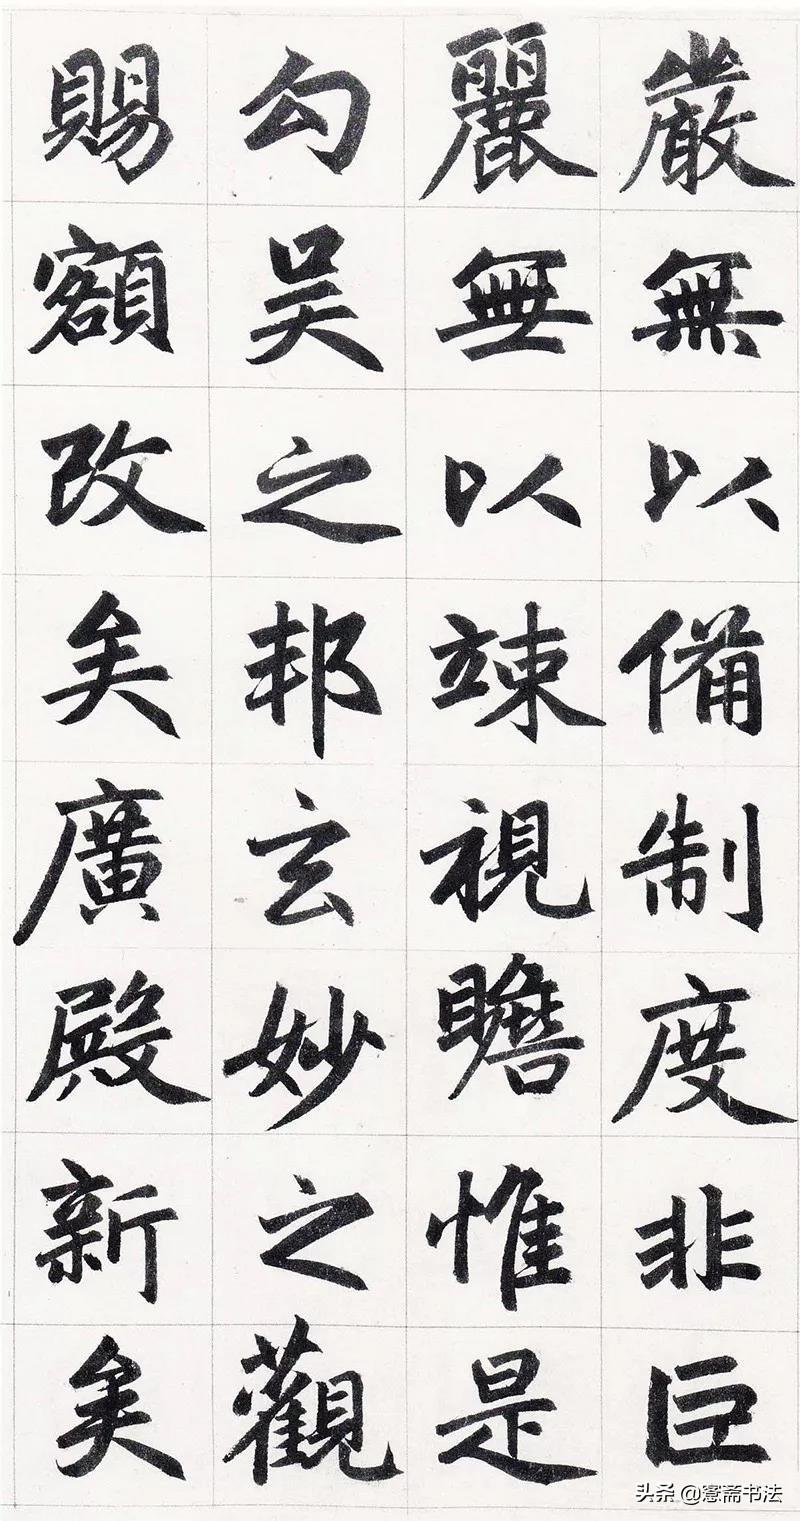 嚴無以備制度非巨
麗無以竦視瞻惟是
勾吳之邦玄妙之觀
賜額改矣廣殿新矣
头条 @窓斋书法